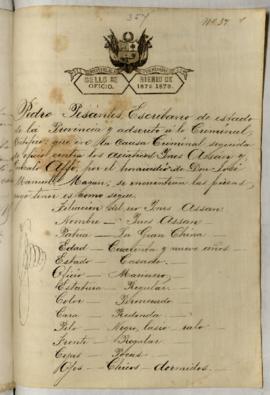 357
SELLO DE
OFICIO.
BIENIO DE
1878 1879.
Pedro Pesantes, Escribano de estado
de la Provincia y adscrito a lo Criminal
que en la Causa Criminal seguida
de oficio contra los asiáticos Ynes Assan y
Affo, por el homicidio de Don José
Manuel se encuentran las piezas,
cuyo tenor es como sigue.
Filiacion del reo Ynes Assan
Nombre — Ynes Assan
Patria — La Gran China
Edad — Cuarenta y nueve años —
Estado — Casado.
Oficio — Marinero
Estatura — Regular
Color — Bronceado
Cara — Redonda —
Pelo — Negro, lasio ralo
Frente — Regular
Cejas — Pocas
Ojos — Chicos — dormidos.